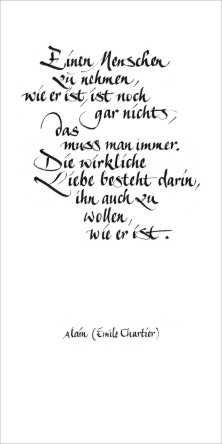 Einen Menschen
zu nehmen,
wie er ist, ist noch
gar nichts,
das
muss man immer.
Die wirkliche
Liebe besteht darin,
ihn auch zu
wollen,
wie er ist.
Alain (Émile Chartier)